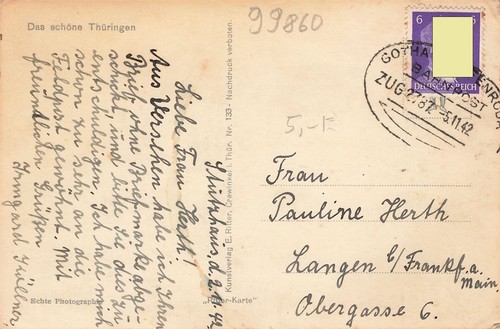 Das schöne Thüringen
99860
5,-E
6 6
DEUTSCHES REICH
GOTHA
BAHNPOST
ZUG 2787
-5.11.42
Stutzhaus, d. 2.11.42
Liebe Frau Herth!
Aus Versehen habe ich Ihren
Brief ohne Briefmarke abge-
schickt, und bitte Sie dies zu
entschuldigen. Ich habe mich
schon zu sehr an die
Feldpost gewöhnt. Mit
freundlichen Grüßen
Irmgard Züllner
Echte Photographie
Kunstverlag E. Ritter, Crawinkel i. Thür. Nr. 133 - Nachdruck verboten.
"Ritter-Karte"
Frau
Pauline Herth
Langen b/Frankf. a.
Main,
Obergasse 6.